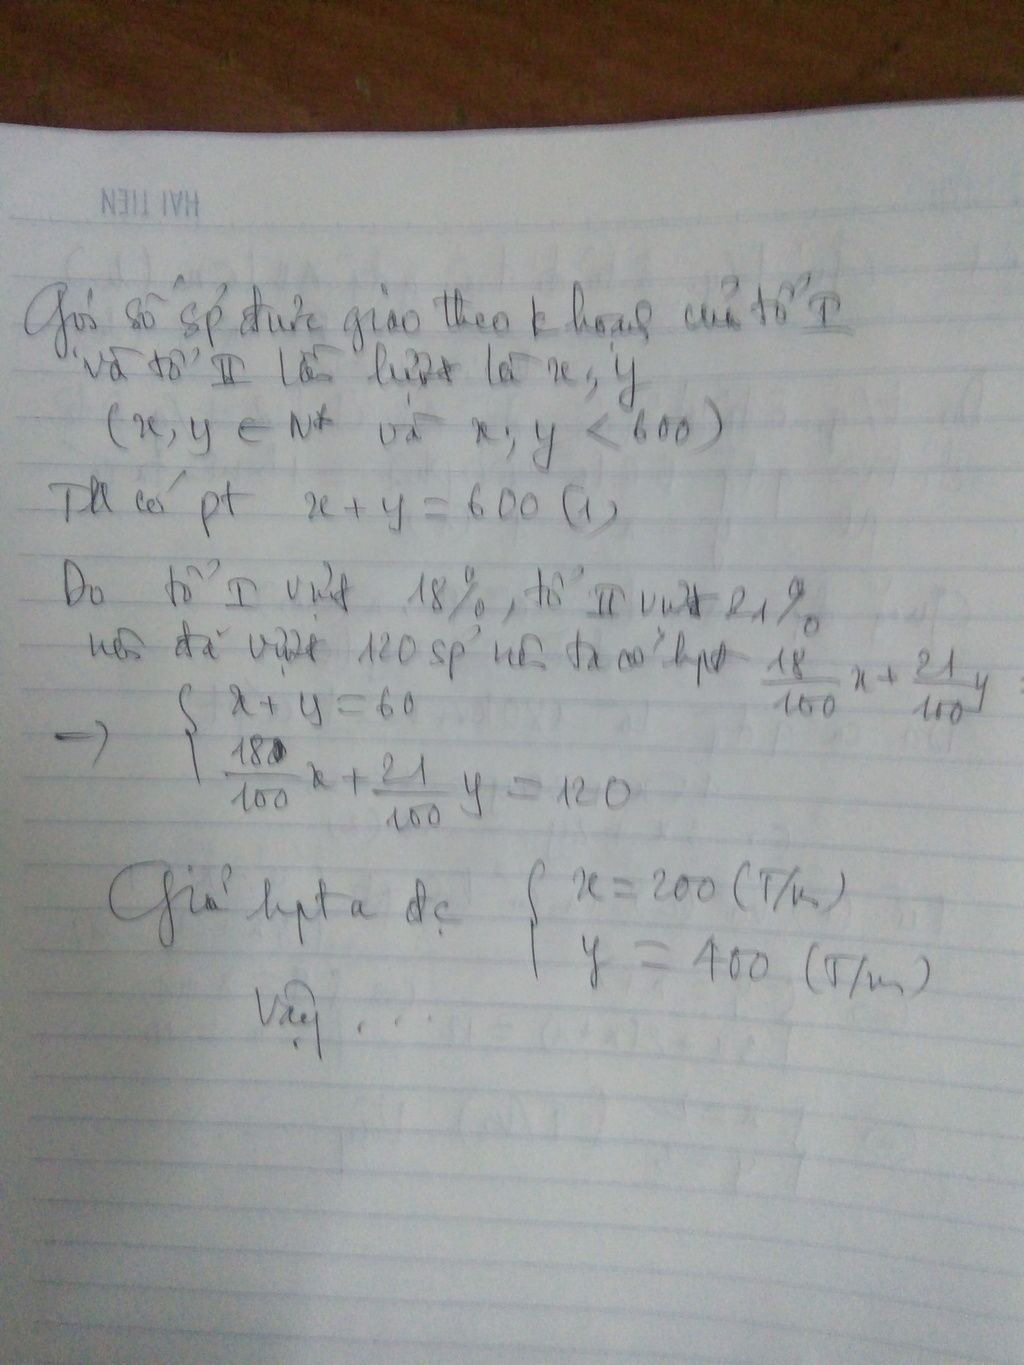 HAI TIEN
Gọi số sp được giao theo k hoạch của tổ I
và tổ II lần lượt là x; y
(x, y ∈ N* và x; y < 600)
Ta có pt x + y = 600 (1)
Do tổ I vượt 18%, tổ II vượt 21%
nên đã vượt 120 sp nên ta có hpt 18/100 x + 21/100 y =
→ { x + y = 60
180/100 x + 21/100 y = 120
Giả hpt a đc { x = 200 (T/m)
y = 400 (T/m)
Vậy ...